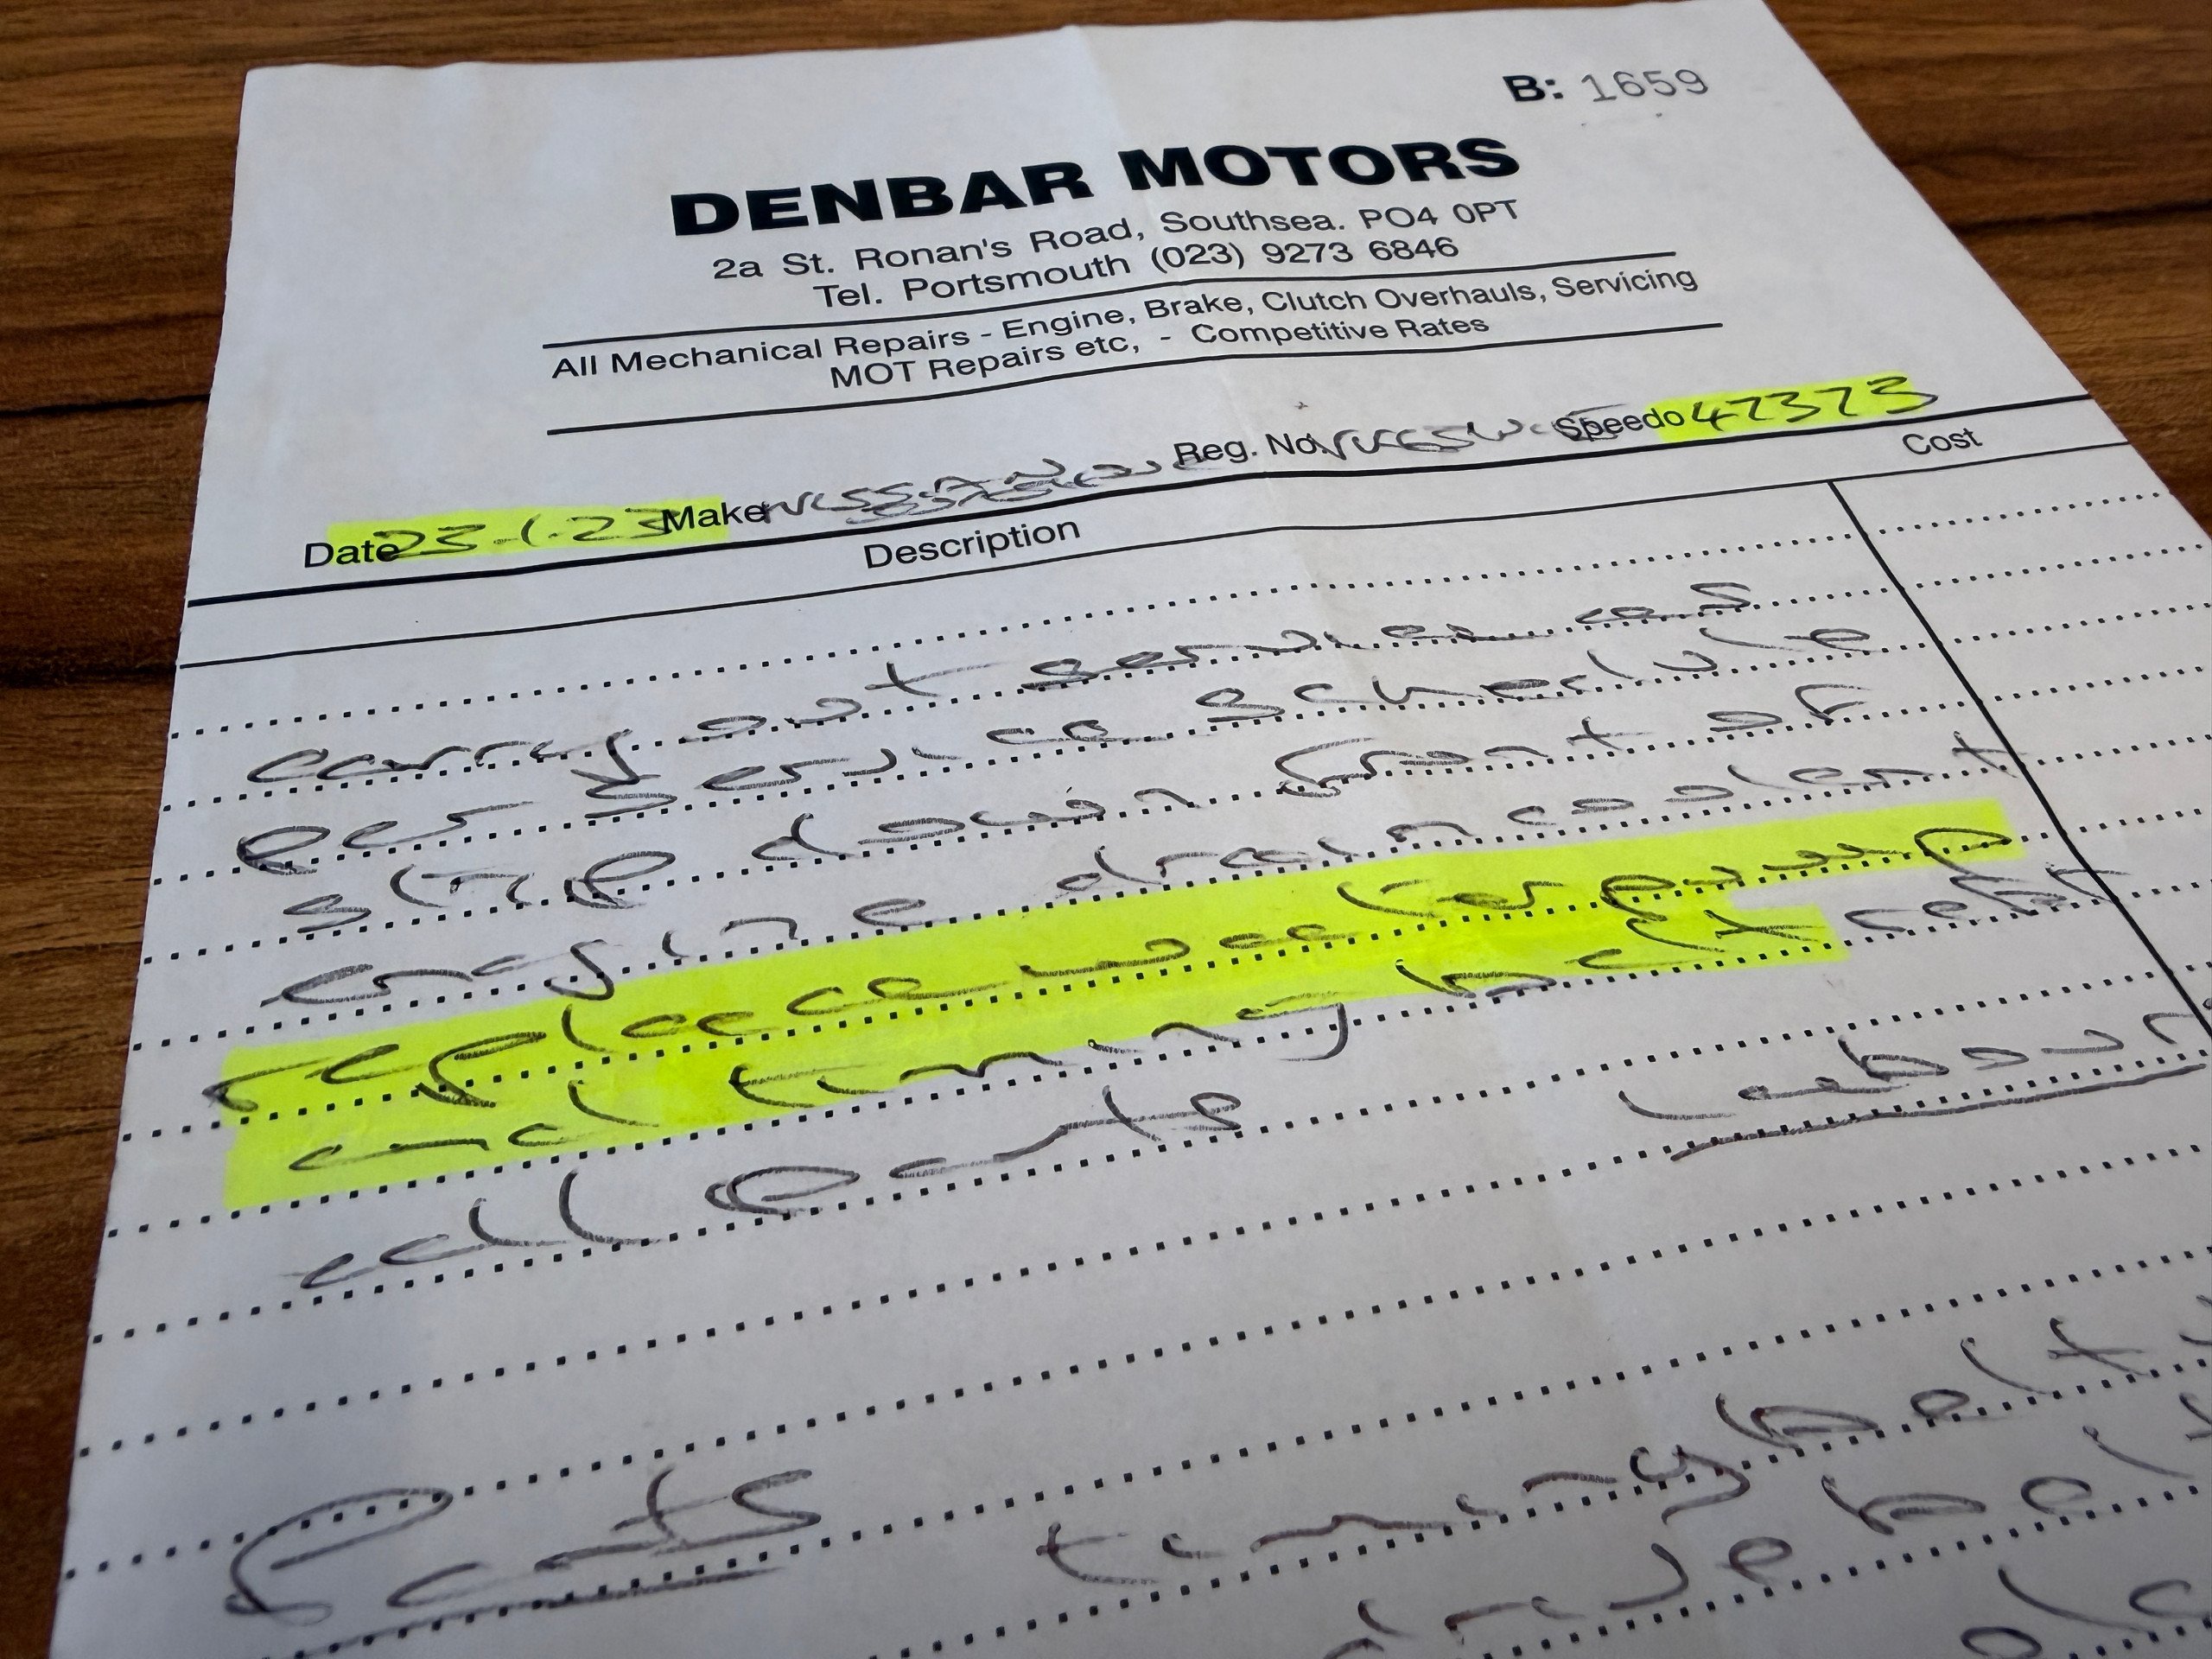 B: 1659
DENBAR MOTORS
2a St. Ronan's Road, Southsea. PO4 0PT
Tel. Portsmouth (023) 9273 6846
All Mechanical Repairs - Engine, Brake, Clutch Overhauls, Servicing
MOT Repairs etc, - Competitive Rates
Date 23-1-23 Make NISSAN Reg. No. Speedo 47373
Description Cost
carry out service as
per service schedule
strip down front of
engine drain coolent
replace waterpump
and timing belt refit
all parts
Labour
Parts
timing belt
drive belt